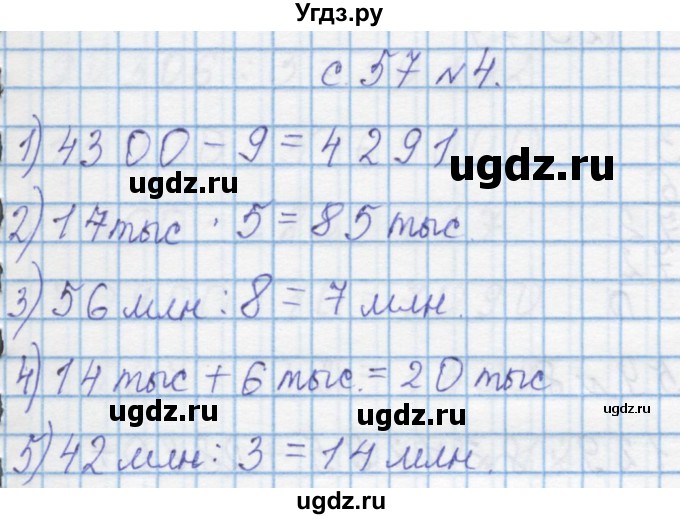 Угдз.ру
с. 57 №4.
1) 4300 - 9 = 4291
ugdz.ru
ugdz.ru
2) 17 тыс · 5 = 85 тыс.
3) 56 млн : 8 = 7 млн.
4) 14 тыс + 6 тыс. = 20 тыс
ugdz.ru
ugdz.ru
ugdz.ru
5) 42 млн : 3 = 14 млн.
ugdz.ru